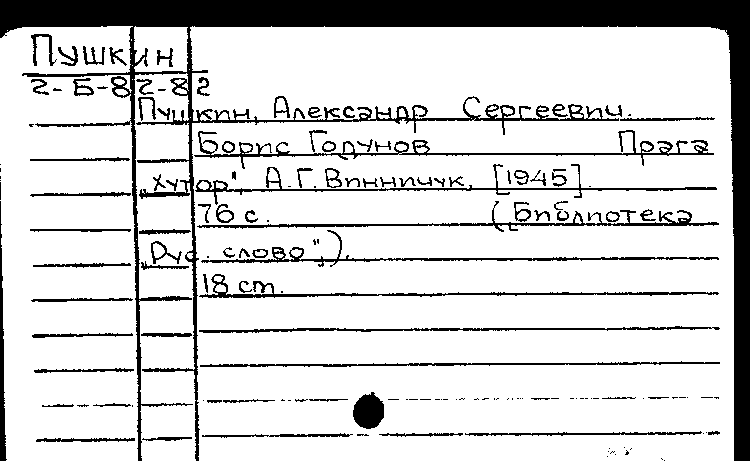 Пушкин
2-Б-82-82
Пушкин, Александр Сергеевич.
Борис Годунов Прага
„Хутор", А.Г.Винничук, [1945]
76 с. (Библиотека
„Рус. слово",).
18 cm.